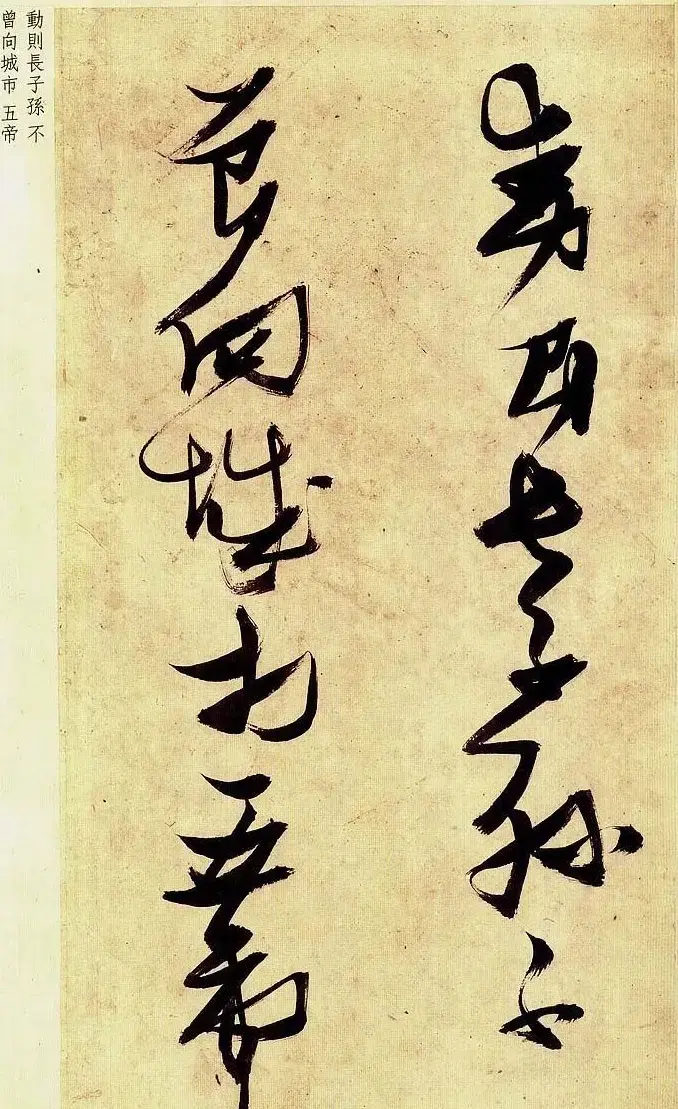 動則長子孫不
曾向城市五帝
動則長子孫 不
曾向城市 五帝